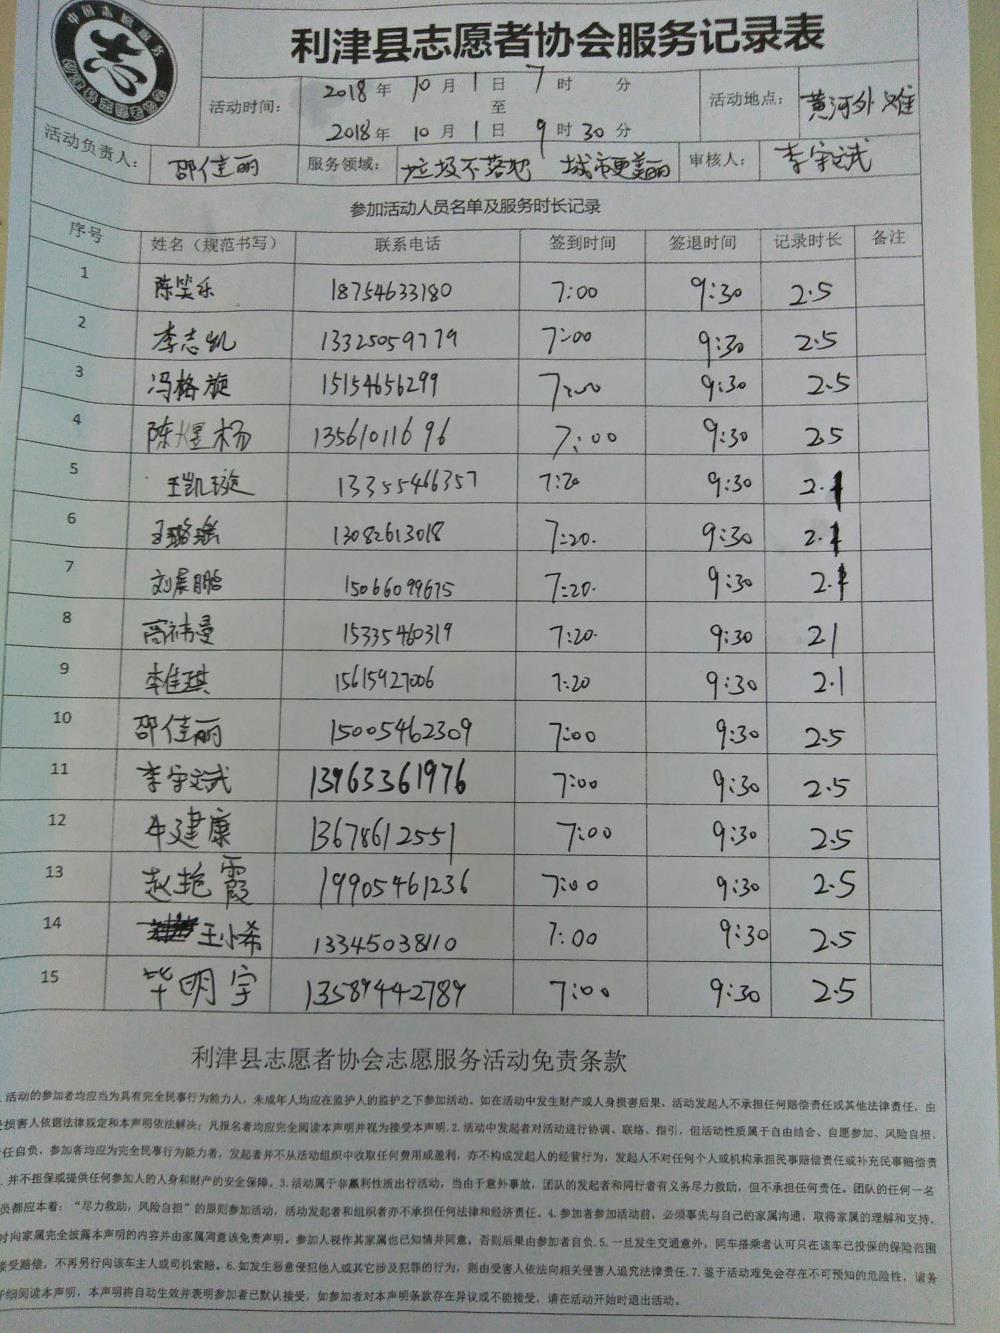 中国志愿服务
利津县志愿者协会服务记录表
活动时间: 2018年 10月 1日 7时 分
至
2018年 10月 1日 9时 30分
活动地点: 黄河外滩
活动负责人: 邵佳丽 服务领域: 垃圾不落地 城市更美丽 审核人: 李宇斌
参加活动人员名单及服务时长记录
序号 姓名（规范书写） 联系电话 签到时间 签退时间 记录时长 备注
1 陈笑乐 18754633180 7:00 9:30 2.5
2 李志凯 13325059779 7:00 9:30 2.5
3 冯格旋 15154656299 7:00 9:30 2.5
4 陈煜杨 13561011696 7:00 9:30 2.5
5 王凯璇 13355466357 7:20 9:30 2.1
6 王璐瑶 13082613018 7:20. 9:30 2.1
7 刘晨鹏 15066099675 7:20. 9:30 2.1
8 高祎曼 15335460319 7:20. 9:30 21
9 李佳琪 15615927006 7:20 9:30 2.1
10 邵佳丽 15005462309 7:00 9:30 2.5
11 李宇斌 13963361976 7:00 9:30 2.5
12 牛建康 13678612551 7:00 9:30 2.5
13 赵艳霞 19905461236 7:00 9:30 2.5
14 王小希 13345038110 7:00 9:30 2.5
15 毕明宇 13589442789 7:00 9:30 2.5
利津县志愿者协会志愿服务活动免责条款
.活动的参加者均应当为具有完全民事行为能力人，未成年人均应在监护人的监护之下参加活动。如在活动中发生财产或人身损害后果，活动发起人不承担任何赔偿责任或其他法律责任，由
受损害人依据法律规定和本声明依法解决；凡报名者均应完全阅读本声明并视为接受本声明.2.活动中发起者对活动进行协调、联络、指引，但活动性质属于自由结合、自愿参加、风险自担、
责任自负，参加者均应为完全民事行为能力者，发起者并不从活动组织中收取任何费用或盈利，亦不构成发起人的经营行为，发起人不对任何个人或机构承担民事赔偿责任或补充民事赔偿责
，并不担保或提供任何参加人的人身和财产的安全保障。3.活动属于非赢利性质出行活动，当由于意外事故，团队的发起者和同行者有义务尽力救助，但不承担任何责任。团队的任何一名
员都应本着：“尽力救助，风险自担”的原则参加活动，活动发起者和组织者亦不承担任何法律和经济责任。4.参加者参加活动前，必须事先与自己的家属沟通，取得家属的理解和支持，
时向家属完全披露本声明的内容并由家属同意该免责声明。参加人视作其家属也已知情并同意，否则后果由参加者自负.5.一旦发生交通意外，同车搭乘者认可只在该车已投保的保险范围
接受赔偿，不再另行向该车主人或司机索赔。6.如发生恶意侵犯他人或其它涉及犯罪的行为，则由受害人依法向相关侵害人追究法律责任.7.鉴于活动难免会存在不可预知的危险性，请务
仔细阅读本声明，本声明将自动生效并表明参加者已默认接受，如参加者对本声明条款存在异议或不能接受，请在活动开始时退出活动。